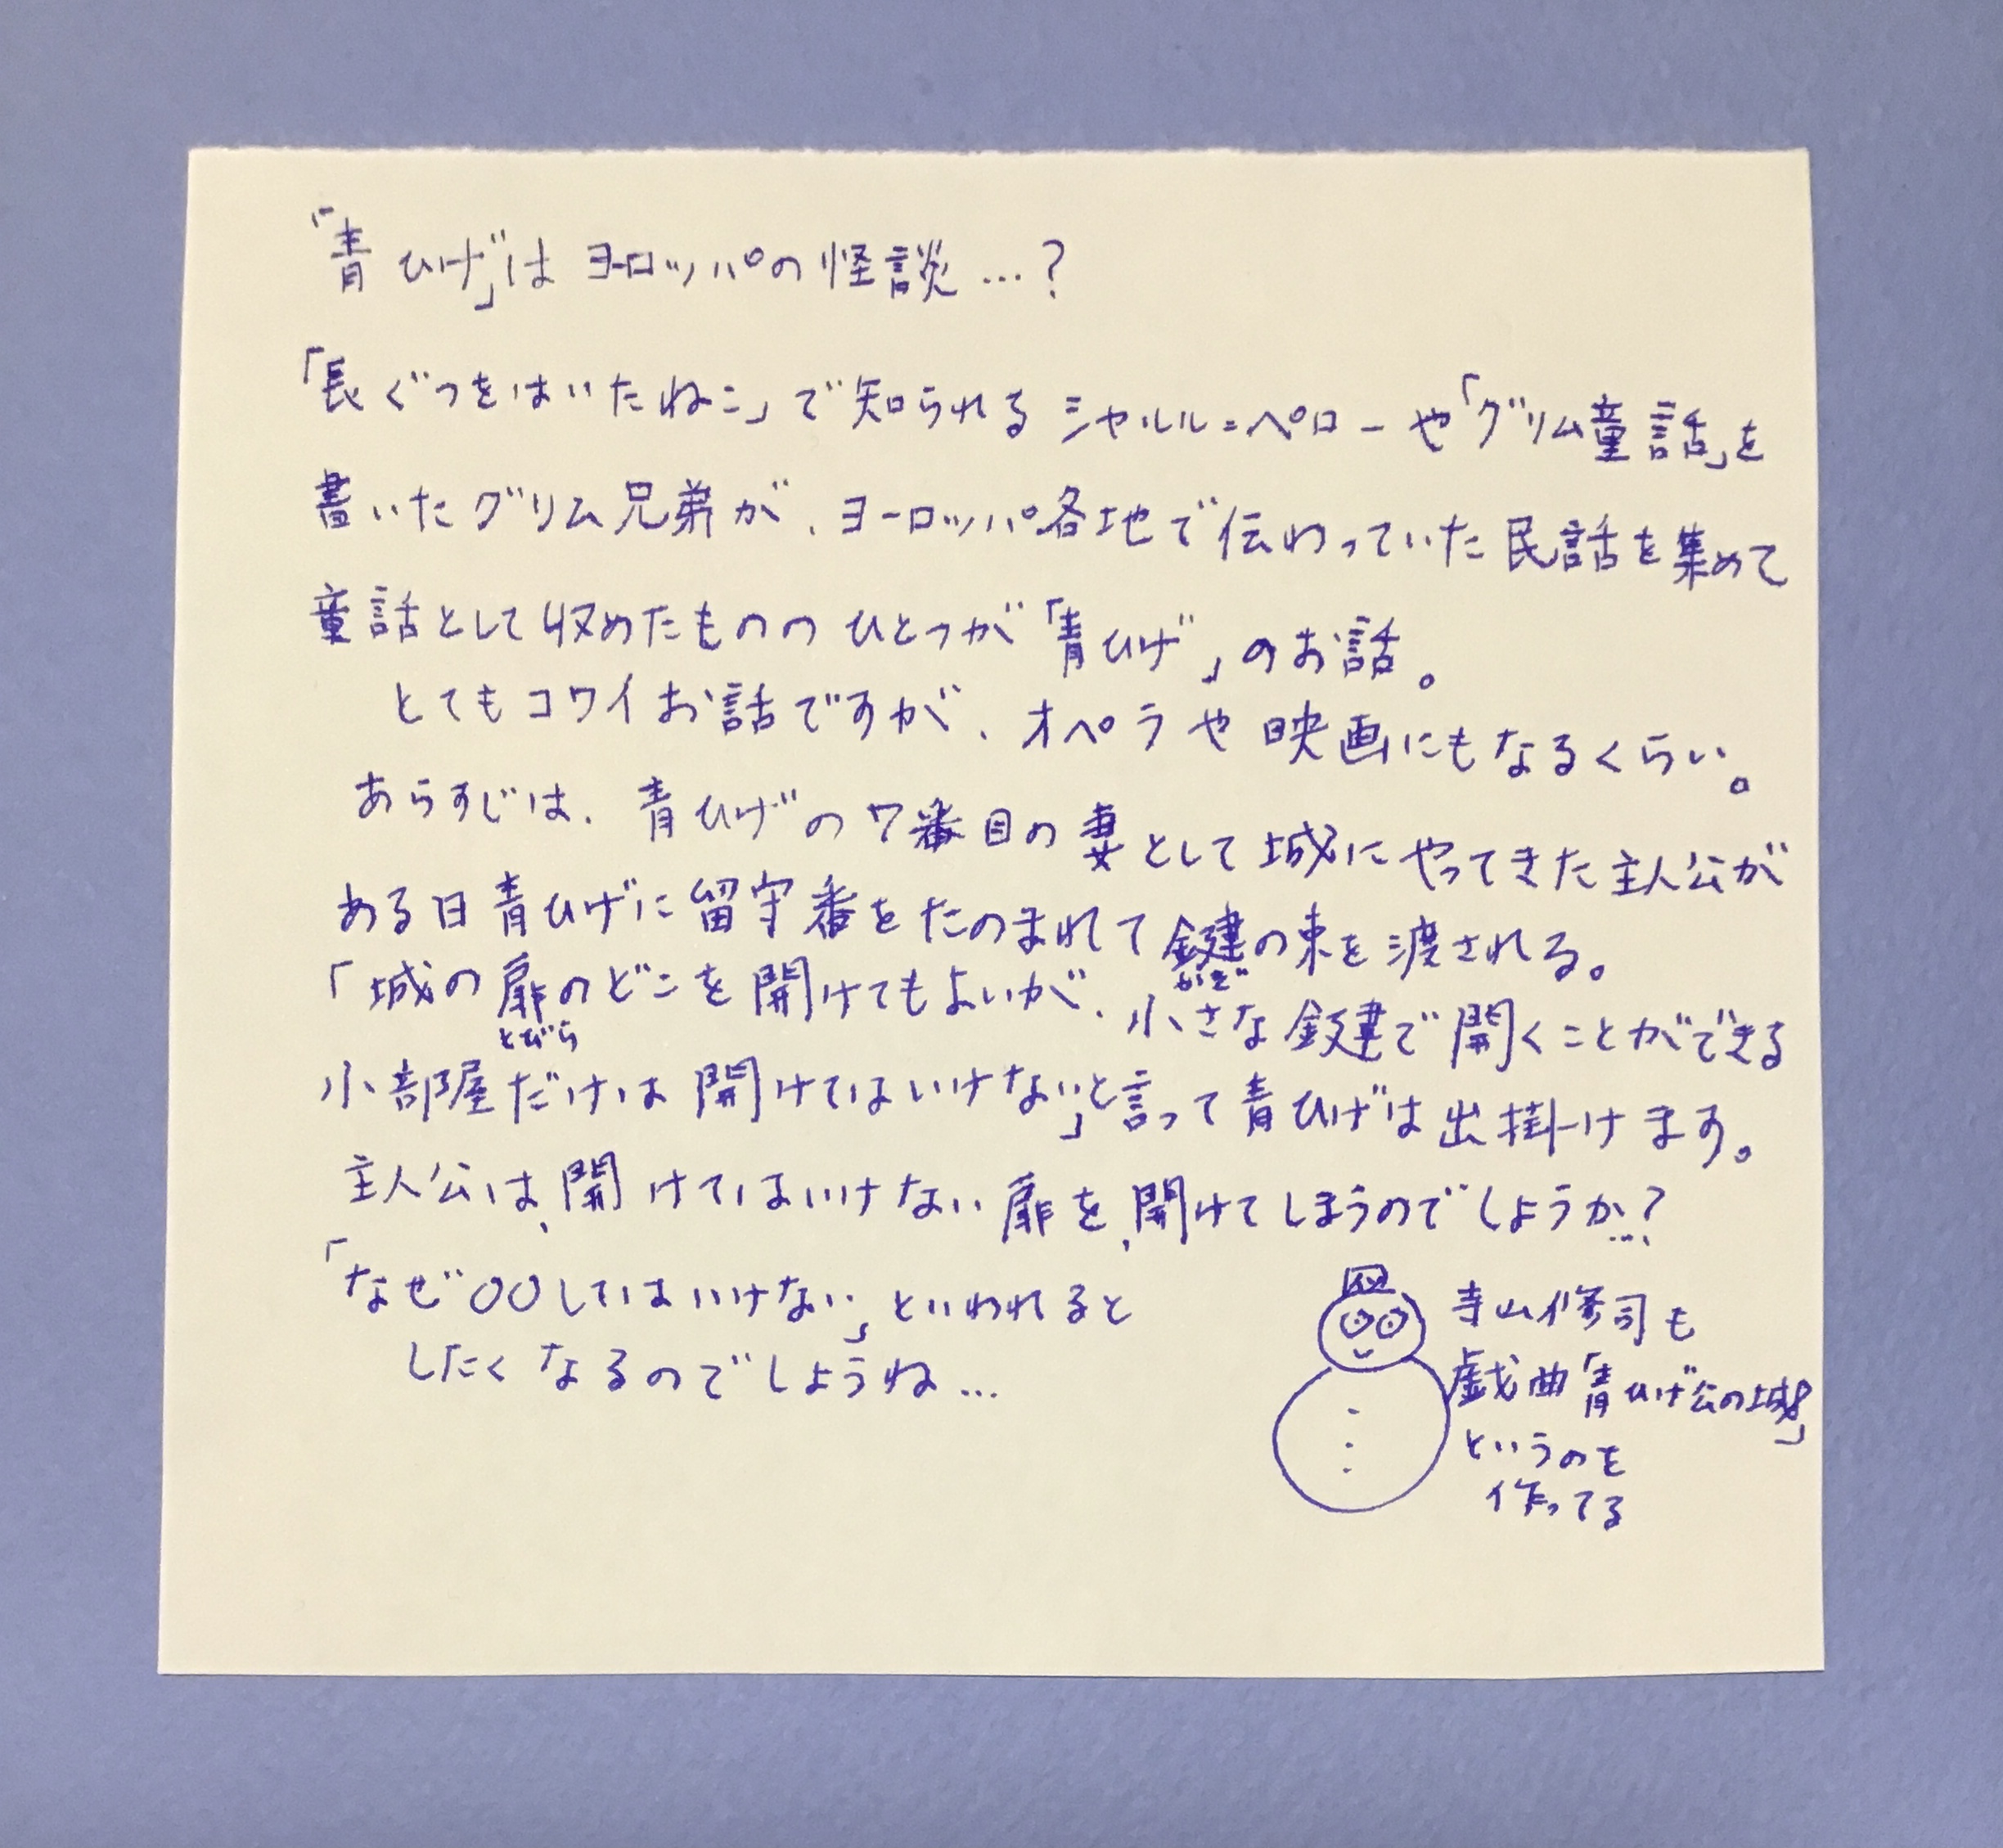 「青ひげ」はヨーロッパの怪談…?
「長ぐつをはいたねこ」で知られるシャルル=ペローや「グリム童話」を
書いたグリム兄弟が、ヨーロッパ各地で伝わっていた民話を集めて
童話として収めたもののひとつが「青ひげ」のお話。
とてもコワイお話ですが、オペラや映画にもなるくらい。
あらすじは、青ひげの7番目の妻として城にやってきた主人公が
ある日青ひげに留守番をたのまれて鍵の束を渡される。
かぎ
「城の扉のどこを開けてもよいが、小さな鍵で開くことができる
とびら
小部屋だけは開けてはいけない」と言って青ひげは出掛けます。
主人公は、開けてはいけない扉を、開けてしまうのでしょうか…?
「なぜ〇〇してはいけない」といわれると
したくなるのでしょうね…
寺山修司も
戯曲「青ひげ公の城」
というのを
作ってる